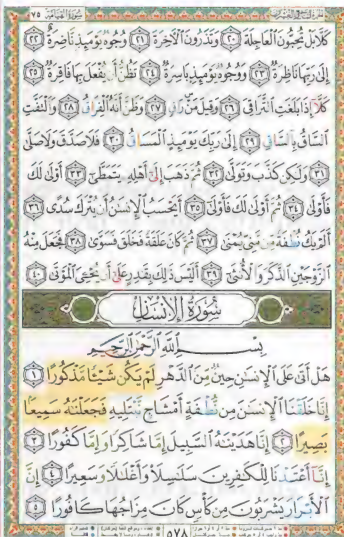 سُورَةُ القِيَامَةِ ٧٥
كَلَّا بَلْ تُحِبُّونَ الْعَاجِلَةَ ٢٠ وَتَذَرُونَ الْآخِرَةَ ٢١ وُجُوهٌ يَوْمَئِذٍ نَّاضِرَةٌ ٢٢
إِلَىٰ رَبِّهَا نَاظِرَةٌ ٢٣ وَوُجُوهٌ يَوْمَئِذٍ بَاسِرَةٌ ٢٤ تَظُنُّ أَن يُفْعَلَ بِهَا فَاقِرَةٌ ٢٥
كَلَّا إِذَا بَلَغَتِ التَّرَاقِيَ ٢٦ وَقِيلَ مَنْ رَاقٍ ٢٧ وَظَنَّ أَنَّهُ الْفِرَاقُ ٢٨ وَالْتَفَّتِ
السَّاقُ بِالسَّاقِ ٢٩ إِلَىٰ رَبِّكَ يَوْمَئِذٍ الْمَسَاقُ ٣٠ فَلَا صَدَّقَ وَلَا صَلَّىٰ
٣١ وَلَٰكِن كَذَّبَ وَتَوَلَّىٰ ٣٢ ثُمَّ ذَهَبَ إِلَىٰ أَهْلِهِ يَتَمَطَّىٰ ٣٣ أَوْلَىٰ لَكَ
فَأَوْلَىٰ ٣٤ ثُمَّ أَوْلَىٰ لَكَ فَأَوْلَىٰ ٣٥ أَيَحْسَبُ الْإِنسَانُ أَن يُتْرَكَ سُدًى ٣٦
أَلَمْ يَكُ نُطْفَةً مِّن مَّنِيٍّ يُمْنَىٰ ٣٧ ثُمَّ كَانَ عَلَقَةً فَخَلَقَ فَسَوَّىٰ ٣٨ فَجَعَلَ مِنْهُ
الزَّوْجَيْنِ الذَّكَرَ وَالْأُنثَىٰ ٣٩ أَلَيْسَ ذَٰلِكَ بِقَادِرٍ عَلَىٰ أَن يُحْيِيَ الْمَوْتَىٰ ٤٠
سُورَةُ الْإِنسَانِ
بِسْمِ اللَّهِ الرَّحْمَٰنِ الرَّحِيمِ
هَلْ أَتَىٰ عَلَى الْإِنسَانِ حِينٌ مِّنَ الدَّهْرِ لَمْ يَكُن شَيْئًا مَّذْكُورًا ١
إِنَّا خَلَقْنَا الْإِنسَانَ مِن نُّطْفَةٍ أَمْشَاجٍ نَّبْتَلِيهِ فَجَعَلْنَاهُ سَمِيعًا
بَصِيرًا ٢ إِنَّا هَدَيْنَاهُ السَّبِيلَ إِمَّا شَاكِرًا وَإِمَّا كَفُورًا ٣
إِنَّا أَعْتَدْنَا لِلْكَافِرِينَ سَلَاسِلَا وَأَغْلَالًا وَسَعِيرًا ٤ إِنَّ
الْأَبْرَارَ يَشْرَبُونَ مِن كَأْسٍ كَانَ مِزَاجُهَا كَافُورًا ٥
٥٧٨